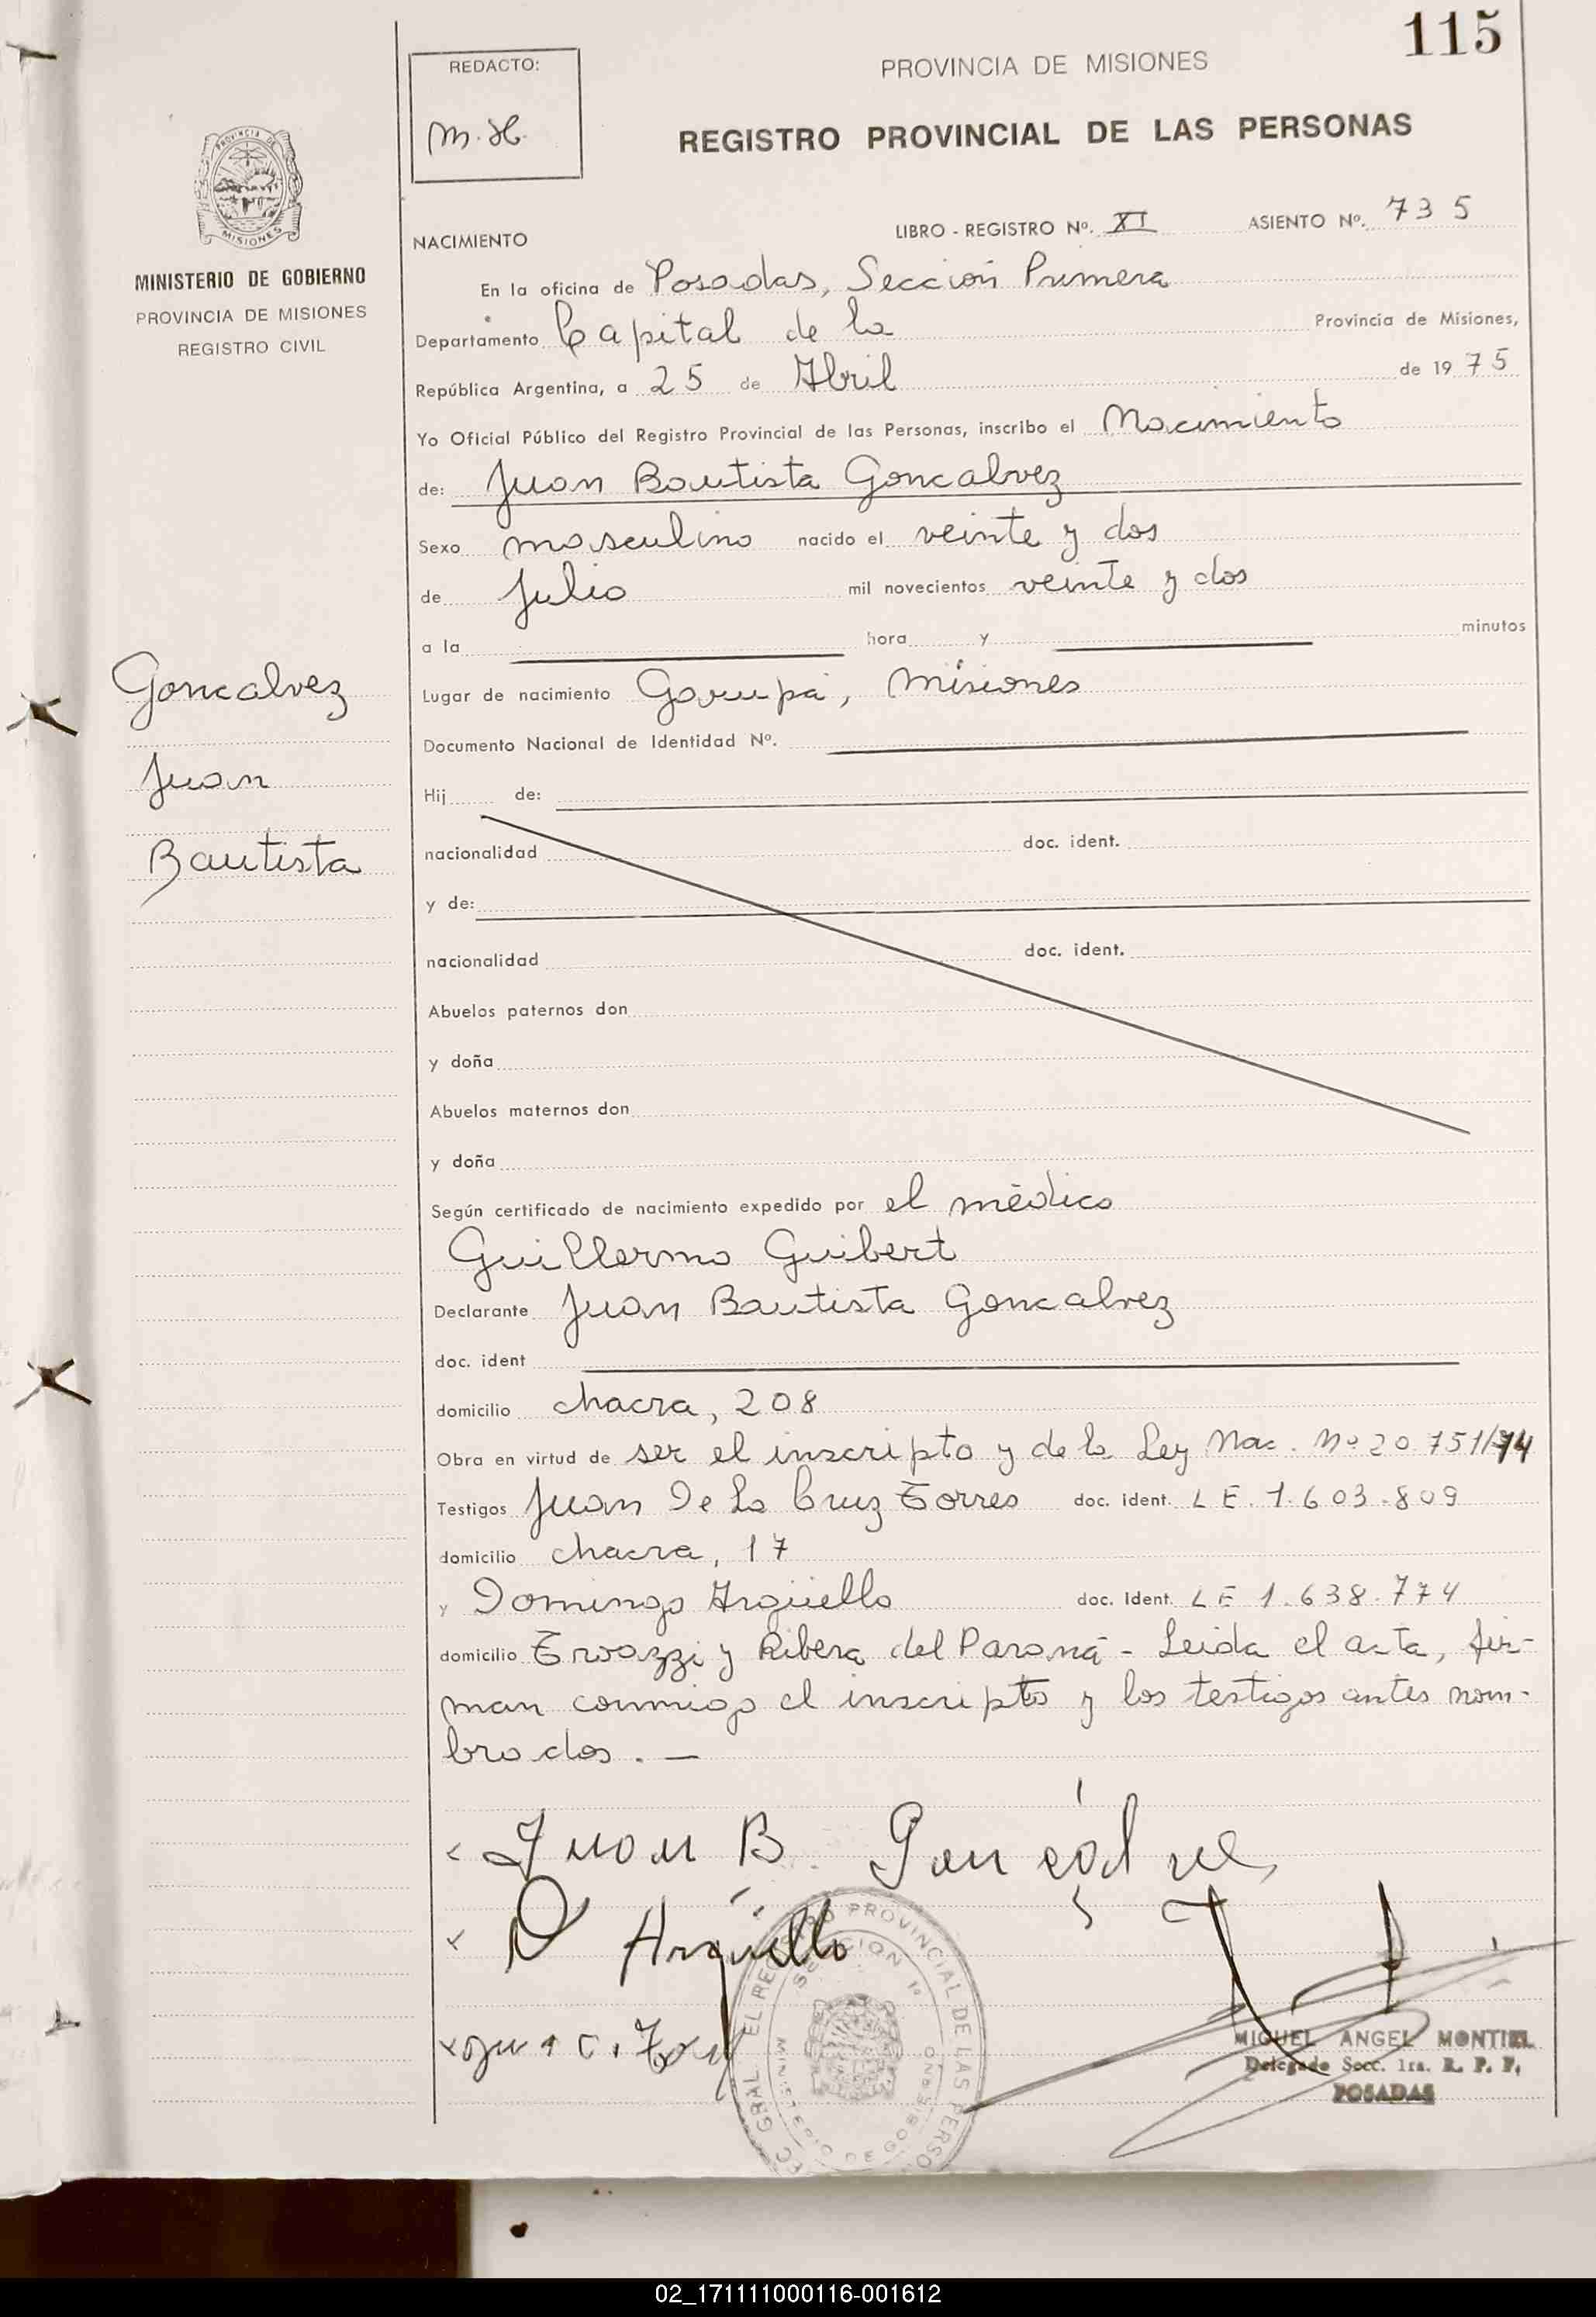 115
REDACTO:
M.H.
PROVINCIA DE MISIONES
REGISTRO PROVINCIAL DE LAS PERSONAS
PROVINCIA DE
MISIONES
MINISTERIO DE GOBIERNO
PROVINCIA DE MISIONES
REGISTRO CIVIL
NACIMIENTO
LIBRO - REGISTRO Nº. XI ASIENTO Nº. 735
En la oficina de Posadas, Sección Primera
Departamento Capital de la Provincia de Misiones,
República Argentina, a 25 de Abril de 1975
Yo Oficial Público del Registro Provincial de las Personas, inscribo el Nacimiento
de: Juan Bautista Goncalvez
Sexo masculino nacido el veinte y dos
de Julio mil novecientos veinte y dos
a la hora y minutos
Goncalvez
Juan
Bautista
Lugar de nacimiento Garupá, Misiones
Documento Nacional de Identidad Nº.
Hij de:
nacionalidad doc. ident.
y de:
nacionalidad doc. ident.
Abuelos paternos don
y doña
Abuelos maternos don
y doña
Según certificado de nacimiento expedido por el médico
Guillermo Guibert
Declarante Juan Bautista Goncalvez
doc. ident
domicilio chacra, 208
Obra en virtud de ser el inscripto y de la Ley Nac. Nº 20.751/74
Testigos Juan De La Cruz Torres doc. ident. LE. 1.603.809
domicilio chacra, 17
y Domingo Argüello doc. Ident. LE 1.638.774
domicilio Ervazzi y Ribera del Paraná - Leida el acta, fir-
man conmigo el inscripto y los testigos antes nom-
brados. —
x Juan B. Goncalve
x D Argüello
x C. Torr
EL REGISTRO PROVINCIAL DE LAS PERSO
SECCION 1ª
MINISTERIO DE GOBIERNO
MIGUEL ANGEL MONTIEL
Delegado Secc. 1ra. R. P. P.
POSADAS
02_171111000116-001612